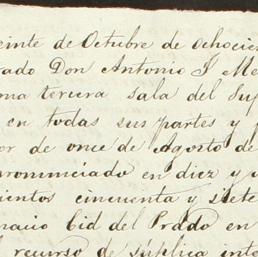 einte de Octubre de ochocien
rado Don Antonio J Me
ma tercera sala del Sup
en todas sus partes y
or de once de Agosto de
ronunciado en diez y
ientos cincuenta y siete
nacio Cid del Prado en
recurso de súplica inte